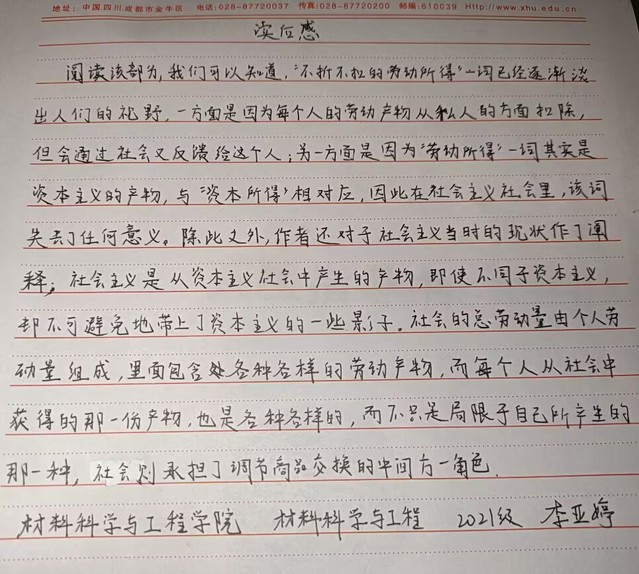 地址：中国.四川.成都市金牛区 电话:028-87720037 传真:028-87720200 邮编:610039 Http://www.xhu.edu.cn
读后感
阅读该部分，我们可以知道，“不折不扣的劳动所得”一词已经逐渐淡
出人们的视野，一方面是因为每个人的劳动产物从私人的方面扣除，
但会通过社会又反馈给这个人；另一方面是因为“劳动所得”一词其实是
资本主义的产物，与“资本所得”相对应，因此在社会主义社会里，该词
失去了任何意义。除此之外，作者还对于社会主义当时的现状作了阐
释；社会主义是从资本主义社会中产生的产物，即使不同于资本主义，
却不可避免地带上了资本主义的一些影子．社会的总劳动量由个人劳
动量组成，里面包含各种各样的劳动产物，而每个人从社会中
获得的那一份产物，也是各种各样的，而不只是局限于自己所产生的
那一种，社会则承担了调节商品交换的中间方一角色．
材料科学与工程学院 材料科学与工程 2021级 李亚婷